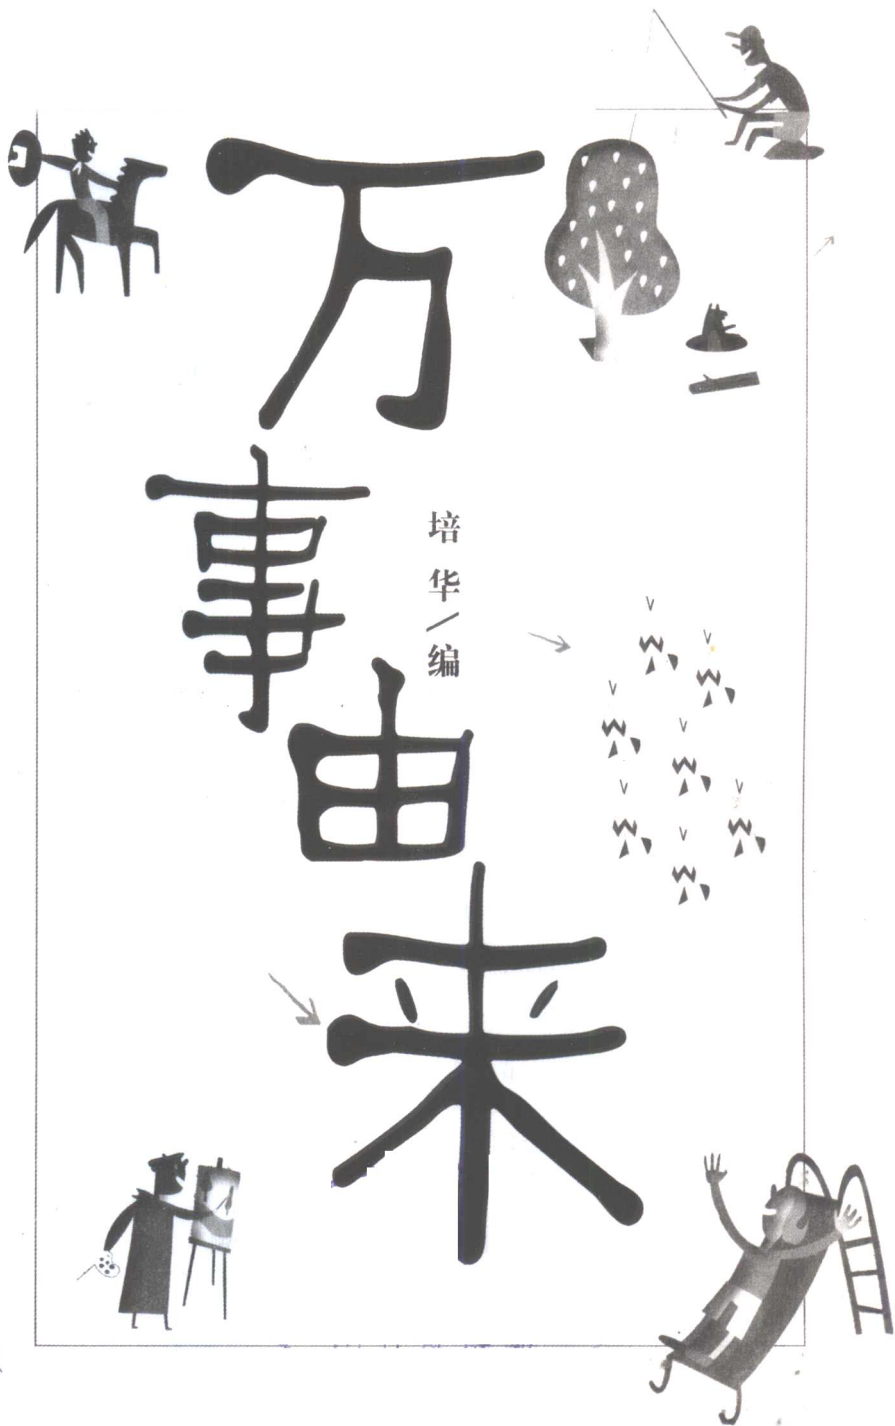 万事由来
培华/编